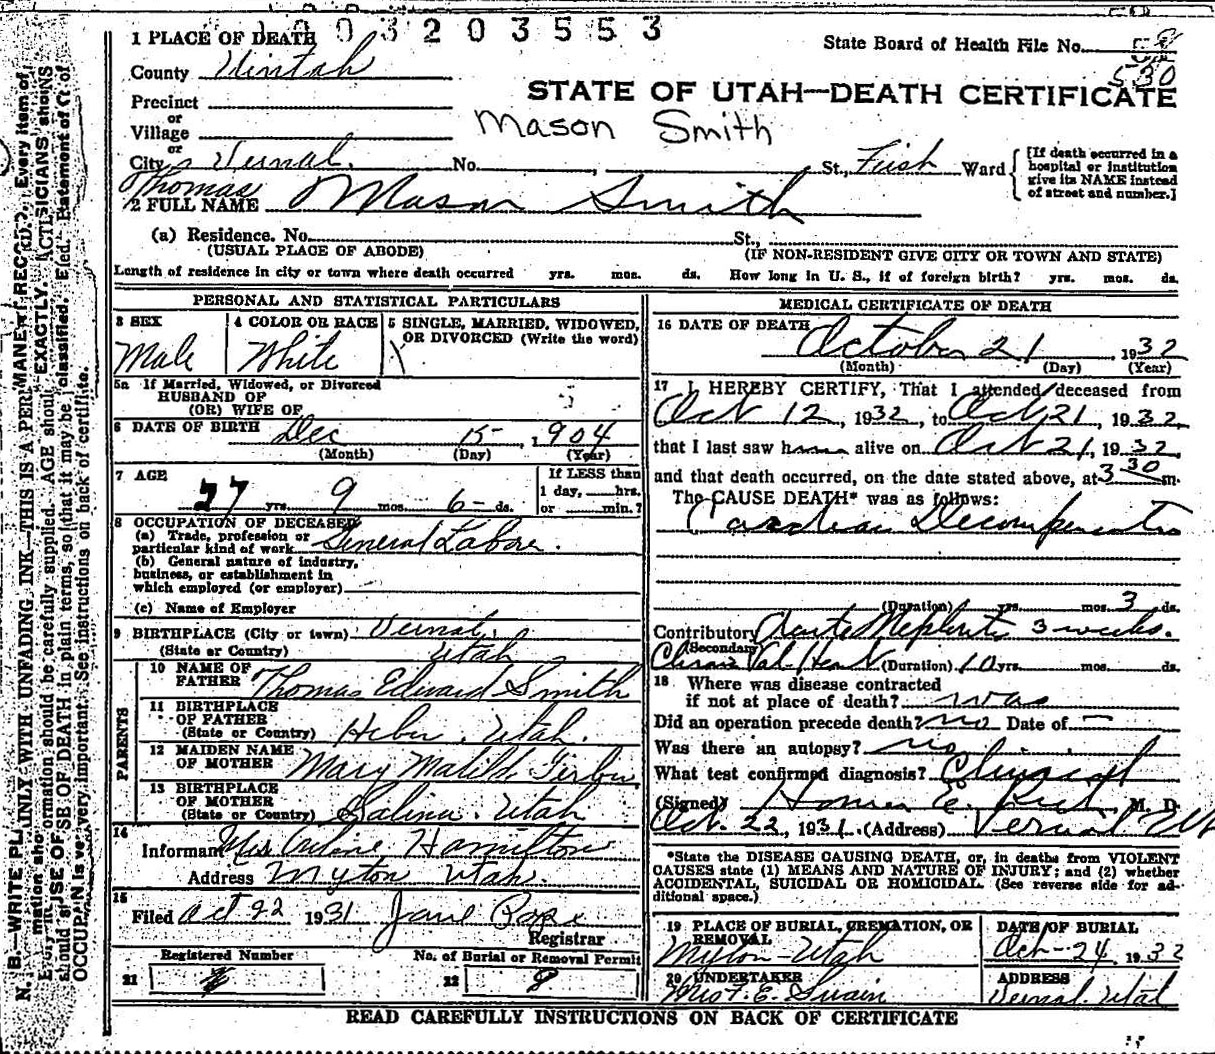 1003203553
1 PLACE OF DEATH
State Board of Health File No.
530
County Uintah
STATE OF UTAH—DEATH CERTIFICATE
Precinct
or
Village
Mason Smith
or
City Vernal. No. , St., First Ward
[If death occurred in a
hospital or institution
give its NAME instead
of street and number.]
Thomas
2 FULL NAME Mason Smith
(a) Residence. No. St.,
(USUAL PLACE OF ABODE) (IF NON-RESIDENT GIVE CITY OR TOWN AND STATE)
Length of residence in city or town where death occurred yrs. mos. ds. How long in U. S., if of foreign birth? yrs. mos. ds.
PERSONAL AND STATISTICAL PARTICULARS
3 SEX
Male
4 COLOR OR RACE
White
5 SINGLE, MARRIED, WIDOWED,
OR DIVORCED (Write the word)
5a If Married, Widowed, or Divorced
HUSBAND OF
(OR) WIFE OF
6 DATE OF BIRTH Dec 15, 1904
(Month) (Day) (Year)
7 AGE
27 yrs. 9 mos. 6 ds.
If LESS than
1 day, hrs.
or min.?
8 OCCUPATION OF DECEASED
(a) Trade, profession or
particular kind of work General Labore.
(b) General nature of industry,
business, or establishment in
which employed (or employer)
(c) Name of Employer
9 BIRTHPLACE (City or town) Vernal,
(State or Country) Utah
PARENTS
10 NAME OF
FATHER Thomas Edward Smith
11 BIRTHPLACE
OF FATHER
(State or Country) Heber, Utah.
12 MAIDEN NAME
OF MOTHER Mary Matild
13 BIRTHPLACE
OF MOTHER
(State or Country) Salina, Utah
14
Informant Mrs Hamilton
Address Myton Utah.
15
Filed Oct 22 1931 Jane Pope
Registrar
Registered Number No. of Burial or Removal Permit
21 22 9
MEDICAL CERTIFICATE OF DEATH
16 DATE OF DEATH October 21, 1932
(Month) (Day) (Year)
17 I HEREBY CERTIFY, That I attended deceased from
Oct 12, 1932, to Oct 21, 1932,
that I last saw him alive on Oct 21, 1932,
and that death occurred, on the date stated above, at 3 30 m.
The CAUSE DEATH* was as follows:
Cardiac Decompensation
(Duration) yrs. mos. 3 ds.
Contributory Acute Nephritis 3 weeks.
(Secondary)
Chronic Val. Heart (Duration) 10 yrs. mos. ds.
18 Where was disease contracted
if not at place of death? was
Did an operation precede death? no Date of —
Was there an autopsy? no
What test confirmed diagnosis? Clinical
(Signed) Homer E. Rich, M. D.
Oct. 22, 1931 (Address) Vernal Ut
*State the DISEASE CAUSING DEATH, or, in deaths from VIOLENT
CAUSES state (1) MEANS AND NATURE OF INJURY; and (2) whether
ACCIDENTAL, SUICIDAL OR HOMICIDAL. (See reverse side for ad-
ditional space.)
19 PLACE OF BURIAL, CREMATION, OR
REMOVAL
Myton—Utah
DATE OF BURIAL
Oct—24, 1932
20 UNDERTAKER
Mrs F. E. Swain
ADDRESS
Vernal. Utah
READ CAREFULLY INSTRUCTIONS ON BACK OF CERTIFICATE
N. B.—WRITE PLAINLY WITH UNFADING INK—THIS IS A PERMANENT RECORD. Every item of
mation should be carefully supplied. AGE should EXACTLY.
should OF DEATH in plain terms, so that it may be classified.
OCCUP N is very important. See instructions on back of certificate.